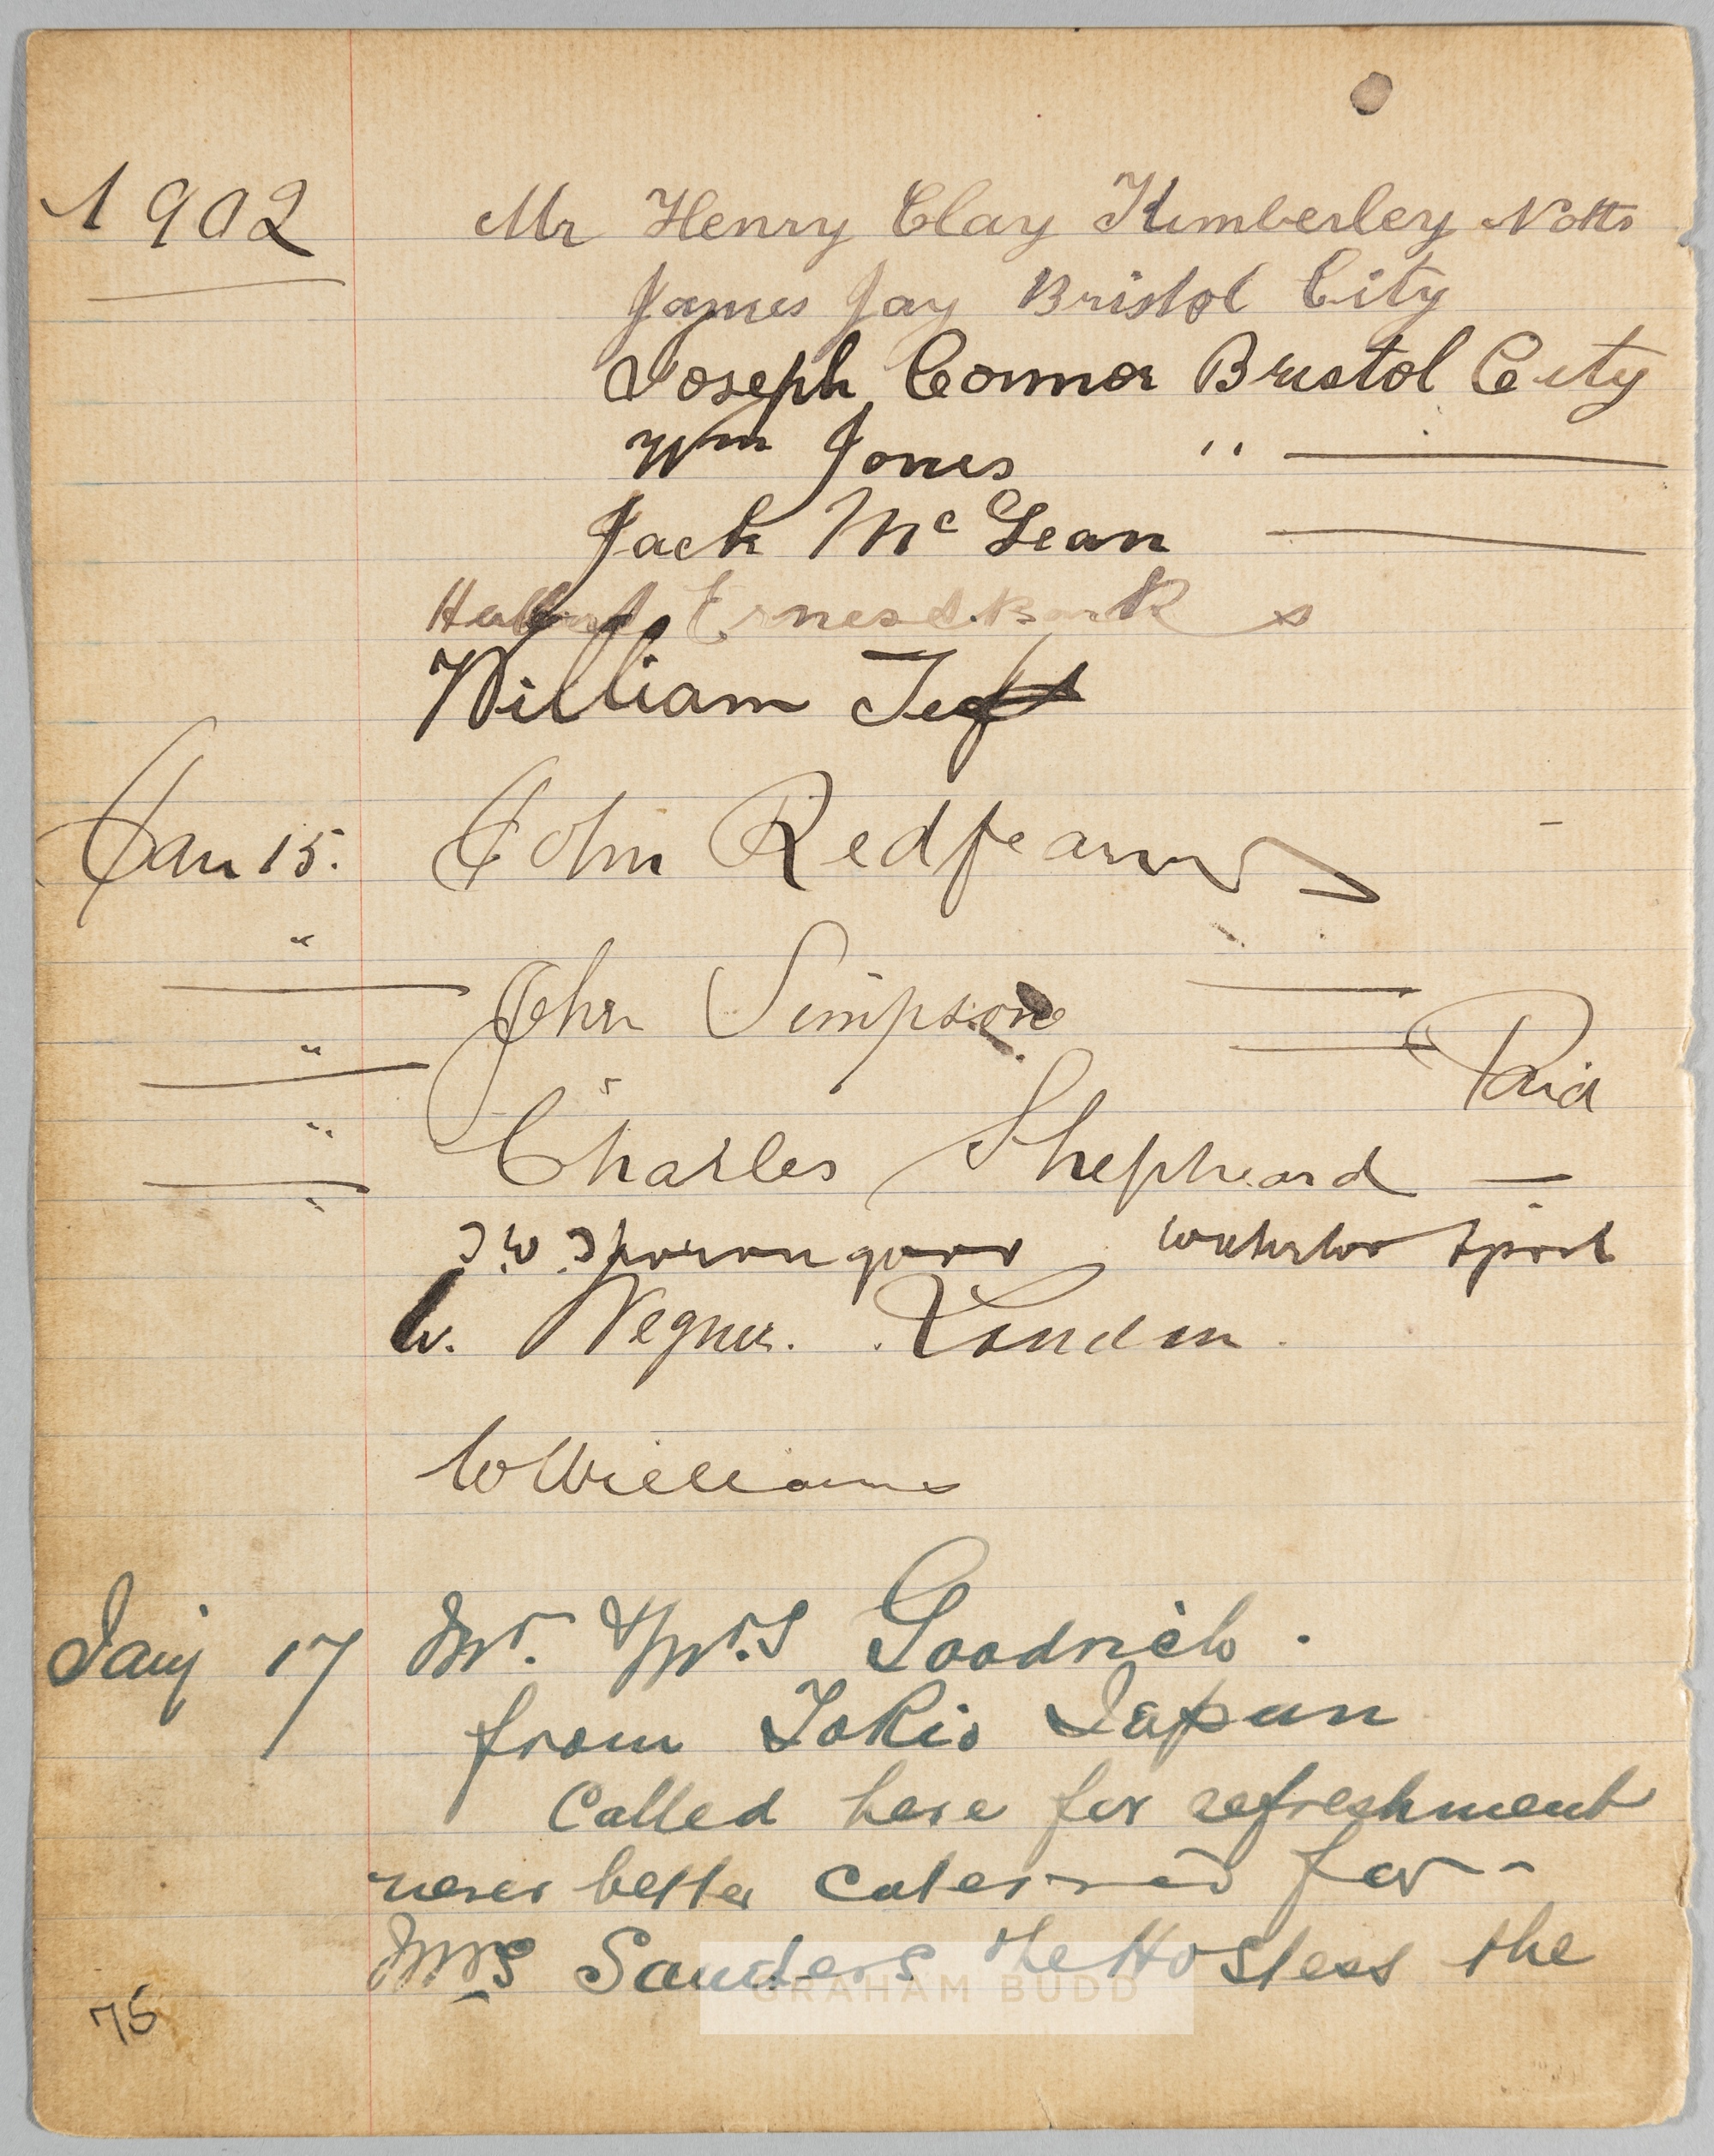 1902 Mr Henry Clay Kimberley Notts
James Jay Bristol City
Joseph Connor Bristol City
Wm Jones "
Jack Mc Lean
Ernest Banks
William Tuft
Jan 15. John Redfearn
" John Simpson
" Paid
" Charles Shepheard
J. W.
W. Wegner. London.
W Williams
Jany 17 Mr. & Mrs Goodrich.
from Tokio Japan
Called here for refreshment
never better caterred for --
Mrs Sanders the Hostess the
75
GRAHAM BUDD